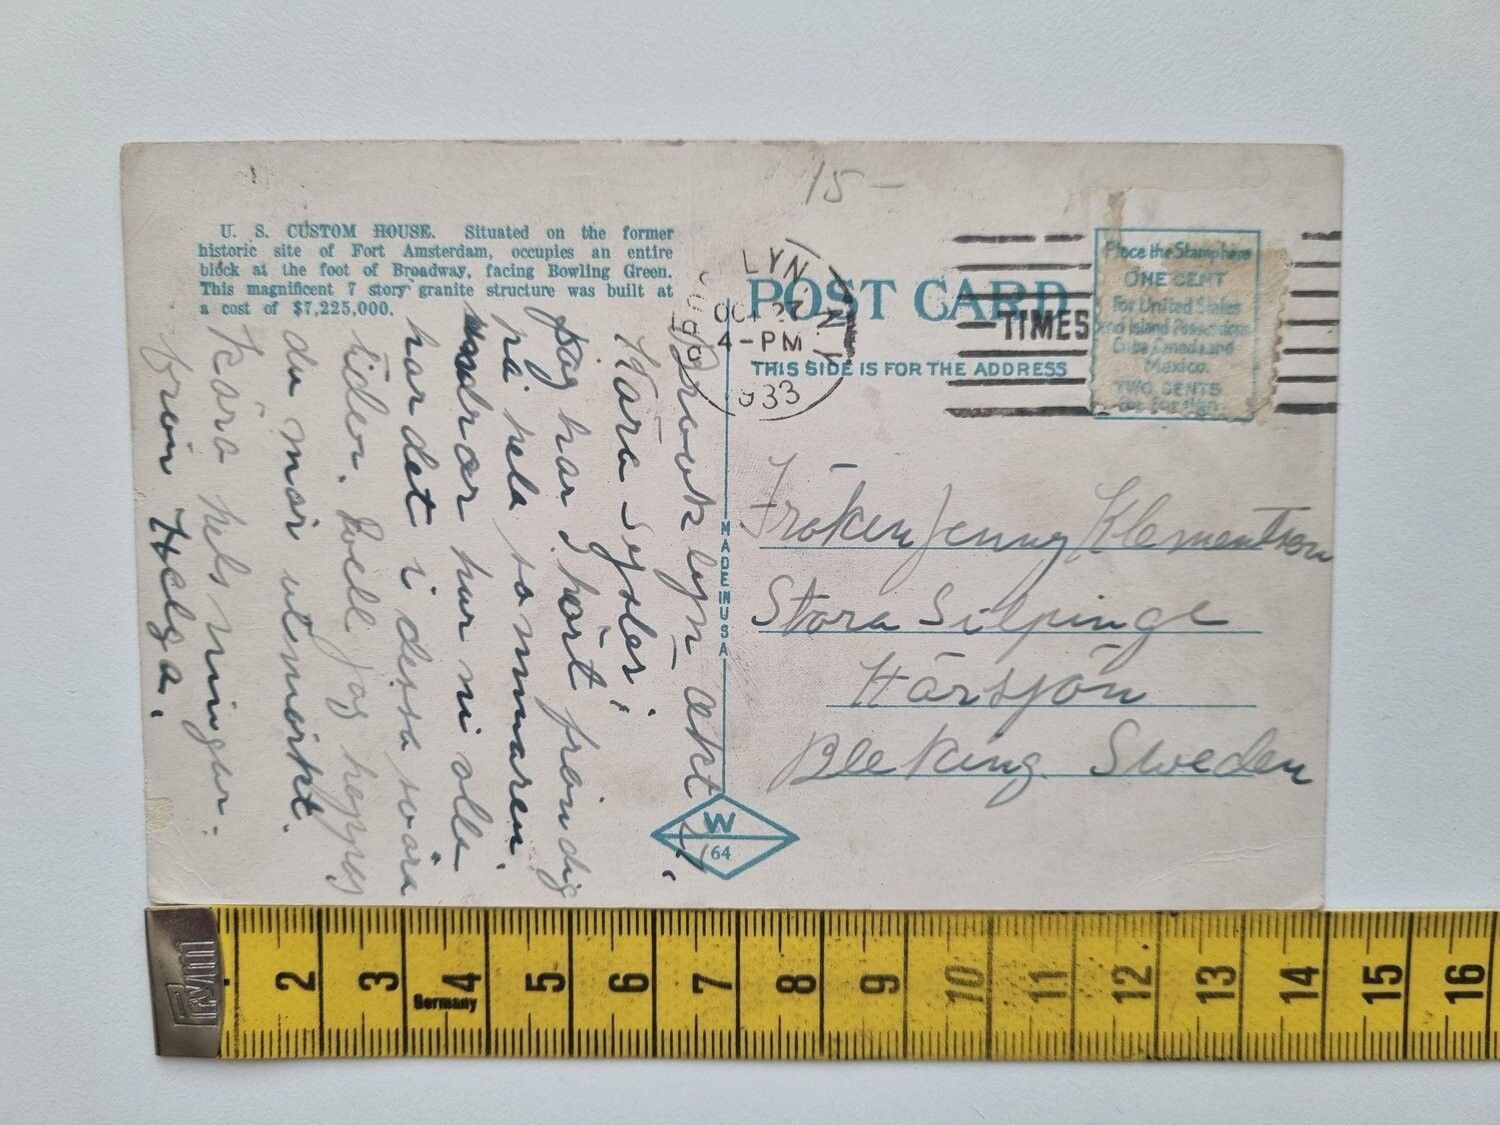 U. S. CUSTOM HOUSE. Situated on the former
historic site of Fort Amsterdam, occupies an entire
block at the foot of Broadway, facing Bowling Green.
This magnificent 7 story granite structure was built at
a cost of $7,225,000.
15-
POST CARD
THIS SIDE IS FOR THE ADDRESS
OCT 27
4-PM
1933
TIMES
Place the Stamp here
ONE CENT
For United States
and Island Possessions
Cuba, Canada and
Mexico.
TWO CENTS
For Foreign
MADE IN USA
W
64
Fröken Jenny Klementson
Stora Silpinge
Härsjön
Bleking Sweden
Brooklyn
Kära Syster,
Jag har hört från dig
på hela sommaren.
undrar hur ni alla
har det i dessa svåra
tider. Well Jag hoppas
du mår utmärkt.
Kära helsningar.
från Helga.
Prym
Germany
1 2 3 4 5 6 7 8 9 10 11 12 13 14 15 16